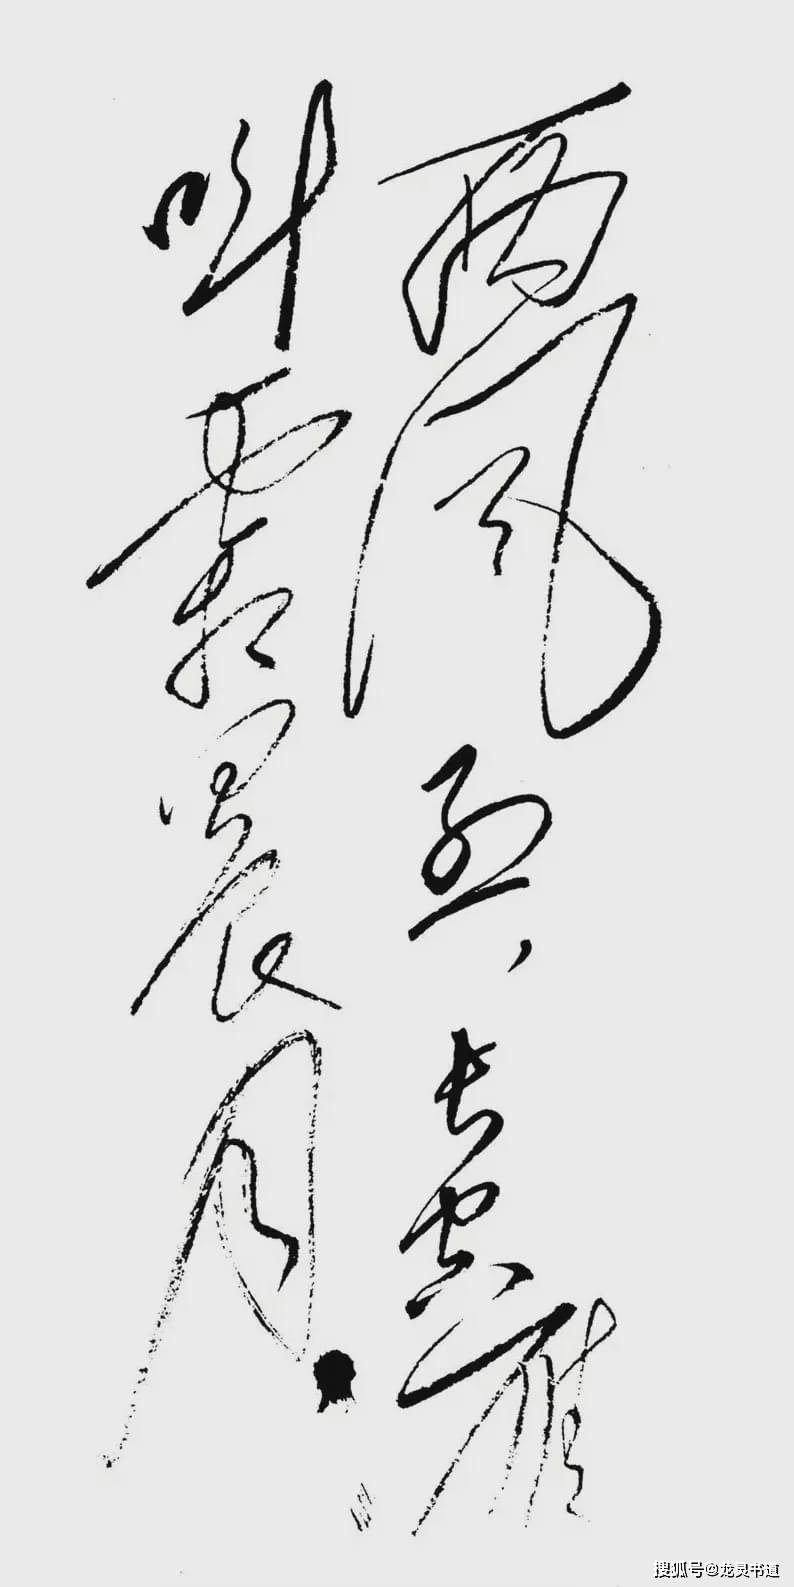 西风烈，长空雁
叫霜晨月。
搜狐号@龙灵书道